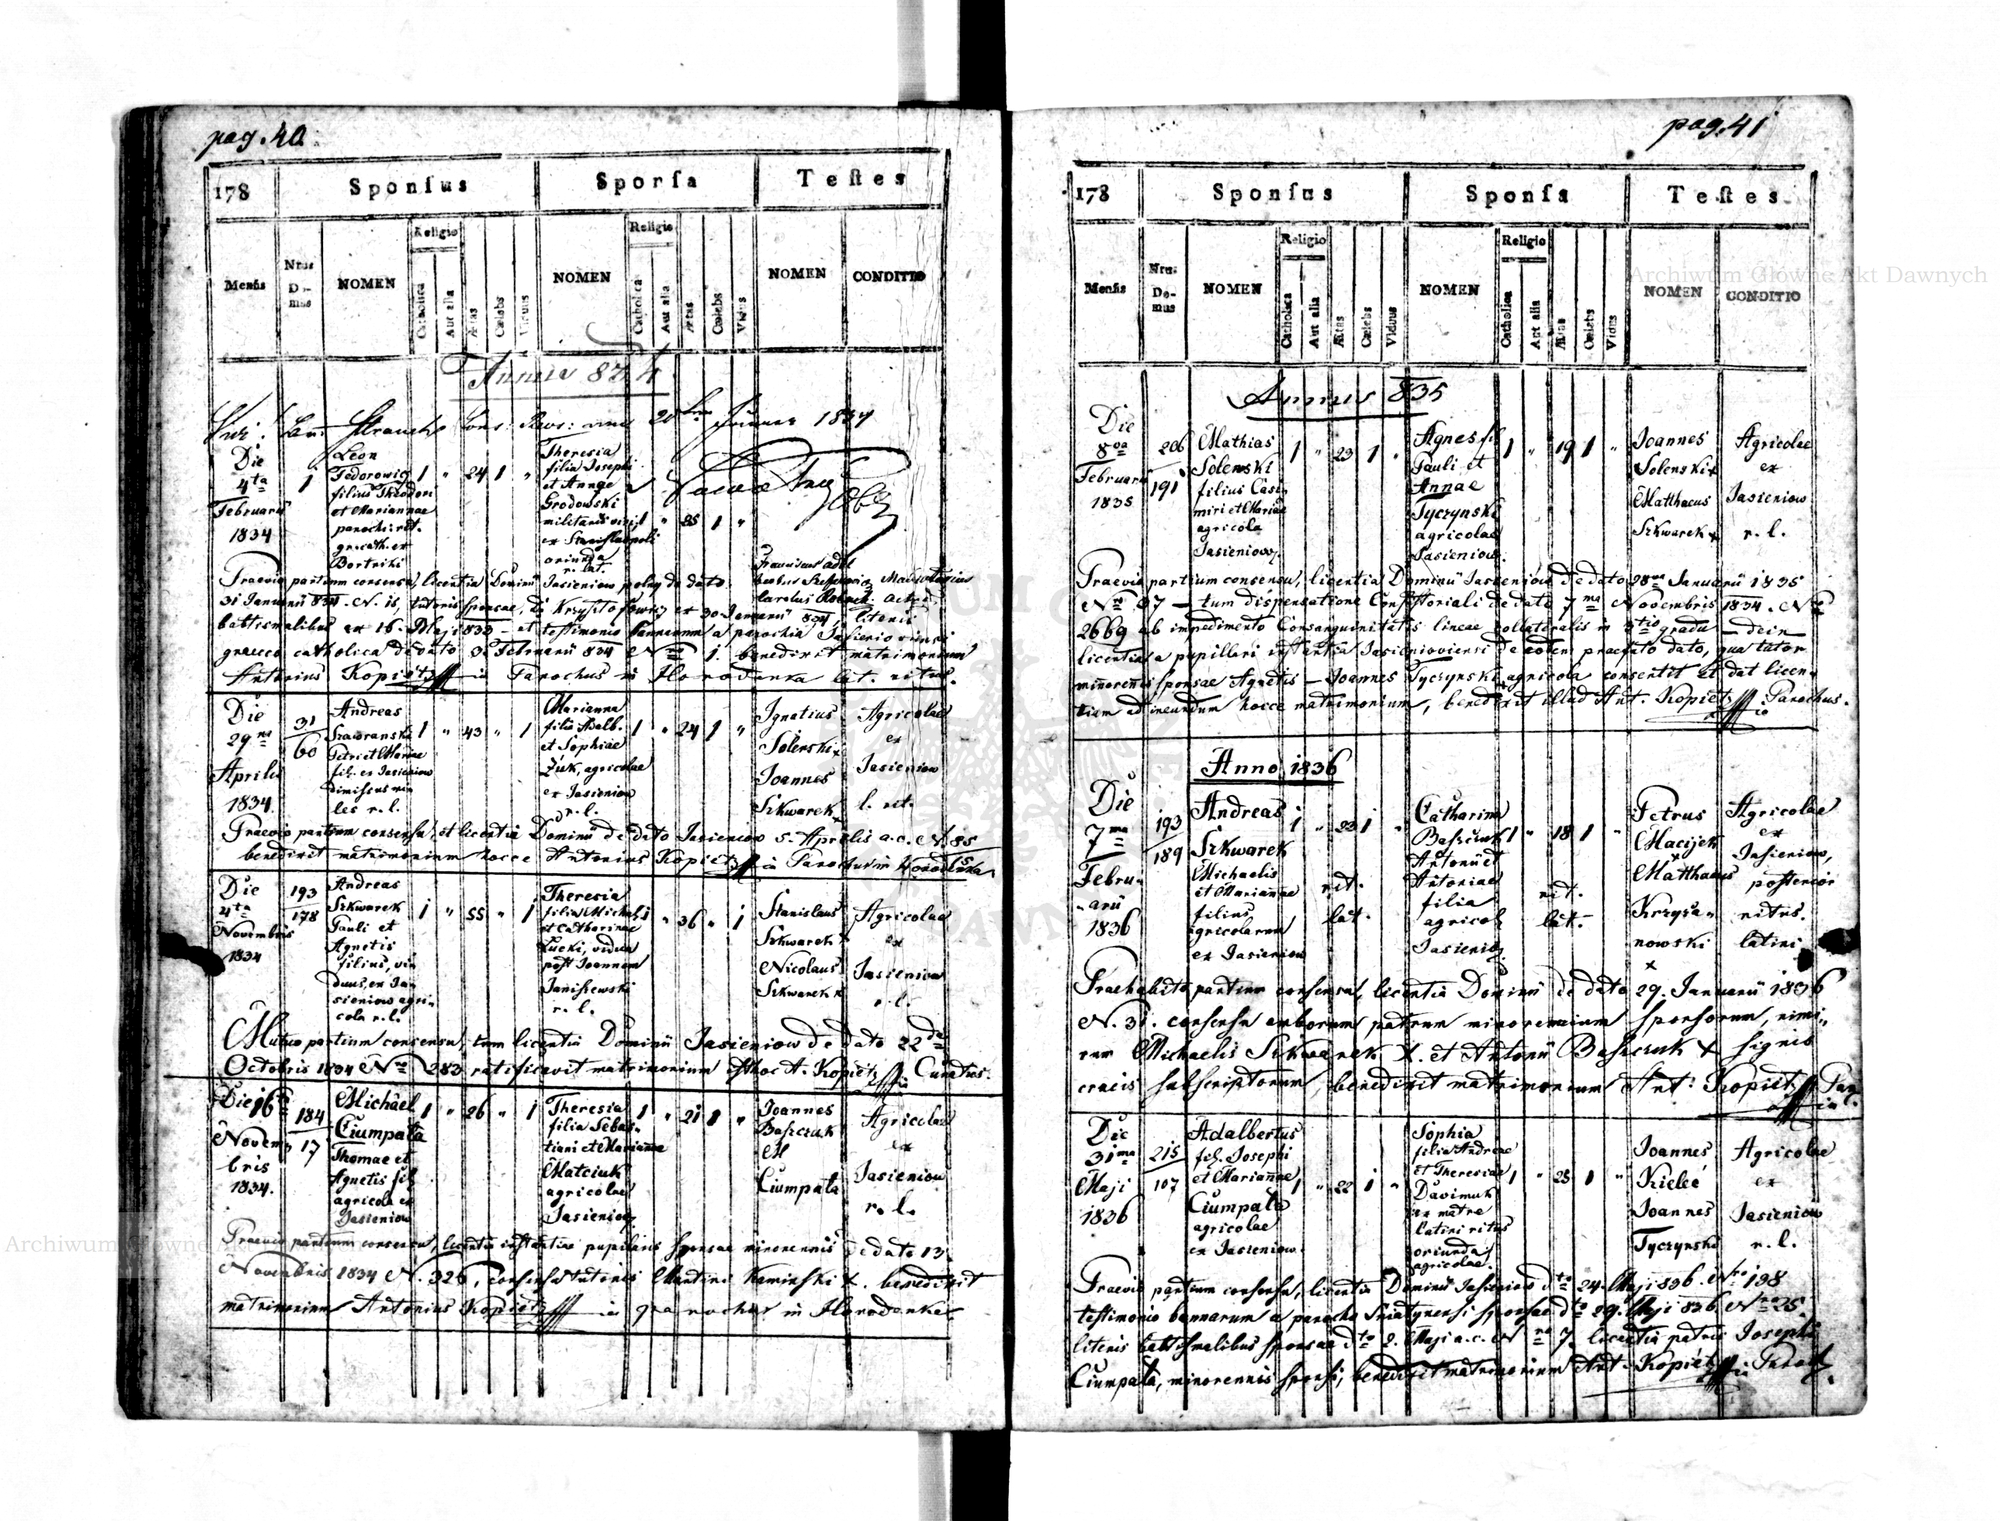 pag. 40.
178
Sponſus
Sponſa
Teſtes
Menſis
Nrus Domus
NOMEN
Religio
Catholica
Aut alia
Ætas
Cœlebs
Viduus
NOMEN
Religio
Catholica
Aut alia
Ætas
Cœlebs
Vidua
NOMEN
CONDITIO
Die
4ta
Februarii
1834
1
Leon
Fedorowicz
filius Theodori
et Mariannae
parochi rit.
gr. cath. ex
Bortniki
1 " 24 1 "
Theresia
filia Josephi
et Annae
Grodowski
ex Stanislaopoli
oriunda
r. lat.
1 "
Praevio partium consensu, licentia Dominii Jasieniow polny de dato
31 Januarii 834. N. 15, tutoris sponsae,
graeco catholica de dato benedixit matrimonium
Antonius Kopietz Parochus in Horodenka lat. ritus.
Die
29na
Aprilis
1834.
31
60
Andreas
Petri et Mariae
fil. ex Jasieniow
les r. l.
1 " 43 " 1
Marianna
filia Adalb.
et Sophiae
Żuk, agricolae
ex Jasieniow
r. l.
1 " 24 1 "
Ignatius
Solenski x
Joannes
Szkwarek x
Agricolae
ex
Jasieniow
l. rit.
Praevio partium consensu, et licentia Dominii de dato Jasieniow 5. Aprilis a.c. N. 85
benedixit matrimonium hocce Antonius Kopietz Parochus in Horodenka
Die
4ta
Novembris
1834
193
178
Andreas
Szkwarek
Pauli et
Agnetis
filius, vi-
duus, ex Ja-
sieniow agri-
cola r. l.
1 " 55 " 1
Theresia
filia Michaeli
et Catharinae
Łucki, vidua
post Joannem
Janiszewski
r. l.
" 36 " 1
Stanislaus
Szkwarek x
Nicolaus
Szkwarek x
Agricolae
ex
Jasieniow
r. l.
Mutuo partium consensu, tum licentia Dominii Jasieniow de dato 22da
Octobris 1834 Nro 283 ratificavit matrimonium hoc A. Kopietz Curatus.
Die 16ta
Novem-
bris
1834.
184
17
Michael
Ciumpala
Thomae et
Agnetis fil.
agricola ex
Jasieniow
1 " 26 " 1
Theresia
filia Sebas-
tiani et Marianne
Mateiuk
agricolae
Jasieniow
1 " 21 1 "
Joannes
Baszczuk
M
Ciumpala
Agricolae
ex
Jasieniow
r. l.
Praevio partium consensu, licentia instantiae pupilaris sponsae minorennis de dato 13
Novembris 1834 N. 326, consensu tutoris Martini Kaminski x. benedixit
matrimonium Antonius Kopietz parochus in Horodenka
pag. 41
178
Sponſus
Sponſa
Teſtes
Menſis
Nrus Domus
NOMEN
Religio
Catholica
Aut alia
Ætas
Cœlebs
Viduus
NOMEN
Religio
Catholica
Aut alia
Ætas
Cœlebs
Vidua
NOMEN
CONDITIO
Annus 835
Die
8va
Februarii
1835
206
191
Mathias
Solenski
filius Casi-
miri et Mariae
agricola
Jasieniow
1 " 23 1 "
Agnes fil.
Pauli et
Annae
Tyczynski
agricolae
Jasieniow
1 " 19 1 "
Joannes
Solenski x
Matthaeus
Szkwarek x
Agricolae
ex
Jasieniow
r. l.
Praevio partium consensu, licentia Dominii Jasieniow de dato 28va Januarii 1835
Nro 37 – tum dispensatione Consistoriali de dato 7ma Novembris 1834. No
2669 ab impedimento Consanguinitatis lineae collateralis in gradu – dein
licentia a pupillari instantia Jasienioviensi de eodem praefato dato, qua tutor
minorennis sponsae Agnetis – Joannes Tyczynski agricola consentit et dat licen-
tiam ad ineundum hocce matrimonium, benedixit illud Ant. Kopietz Parochus.
Anno 1836
Die
7ma
Febru-
arii
1836
193
189
Andreas
Szkwarek
Michaelis
et Mariannae
filius
agricolarum
ex Jasieniow
1 " 23 1 "
rit.
lat.
Catharina
Baszczuk
Antonii et
Antoniae
filia
agricol.
Jasieniow
1 " 18 1 "
rit.
lat.
Petrus
Macijek
x
Matthaeus
Krzyża-
nowski
x
Agricolae
ex
Jasieniow,
posterior
ritus
latini
Praehabito partium consensu, licentia Dominii de dato 29. Januarii 1836
N. 31. consensu amborum patrum minorennium sponsorum, nimi-
rum Michaelis Szkwarek X. et Antonii Baszczuk x signis
crucis subscriptorum, benedixit matrimonium Ant: Kopietz Par.
Die
31ma
Maji
1836
215
107
Adalbertus
fil. Josephi
et Marianne
Ciumpala
agricolae
ex Jasieniow
1 " 22 1 "
Sophia
filia Andreae
et Theresiae
ex matre
latini ritus
oriunda
agricolae
1 " 25 1 "
Joannes
Joannes
Tyczynski
Agricolae
ex
Jasieniow
r. l.
Praevio partium consensu, licentia Dominii Jasieniow dto 24. Maji 836. Nro 138
testimonio bannorum a parocho Sniatynensi sponsae dto 29. Maji 836 Nro 25.
literis baptismalibus sponsae dto 2. Maji a.c. Nro 7. licentia patris Josephi
Ciumpala, minorennis sponsi, benedixit matrimonium Ant. Kopietz Paroch.
Archiwum Główne Akt Dawnych